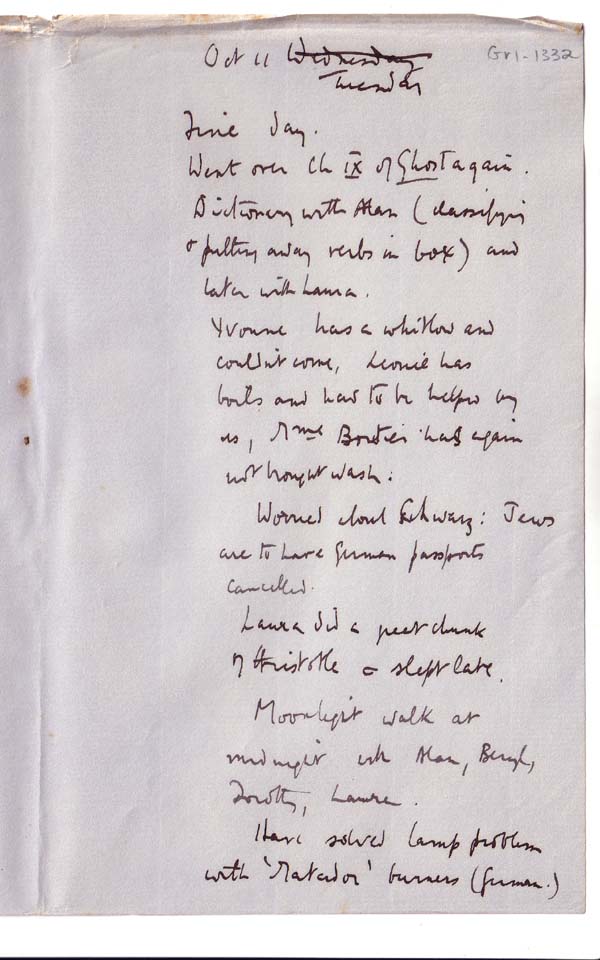 Oct 11 Wednesday
Tuesday
Gr1-1332
Fine day.
Went over Ch IX of Ghost again.
Dictionary with Alan (classifying
& putting away verbs in box) and
later with Laura.
Yvonne has a whitlow and
couldn't come, Leonie has
boils and had to be helped by
us, Mme Bordier has again
not brought wash.
Worried about Schwarz: Jews
are to have German passports
cancelled.
Laura did a great chunk
of Aristotle & slept late.
Moonlight walk at
midnight with Alan, Beryl,
Dorothy, Laura.
Have solved lamp problem
with 'Matador' burners (German.)